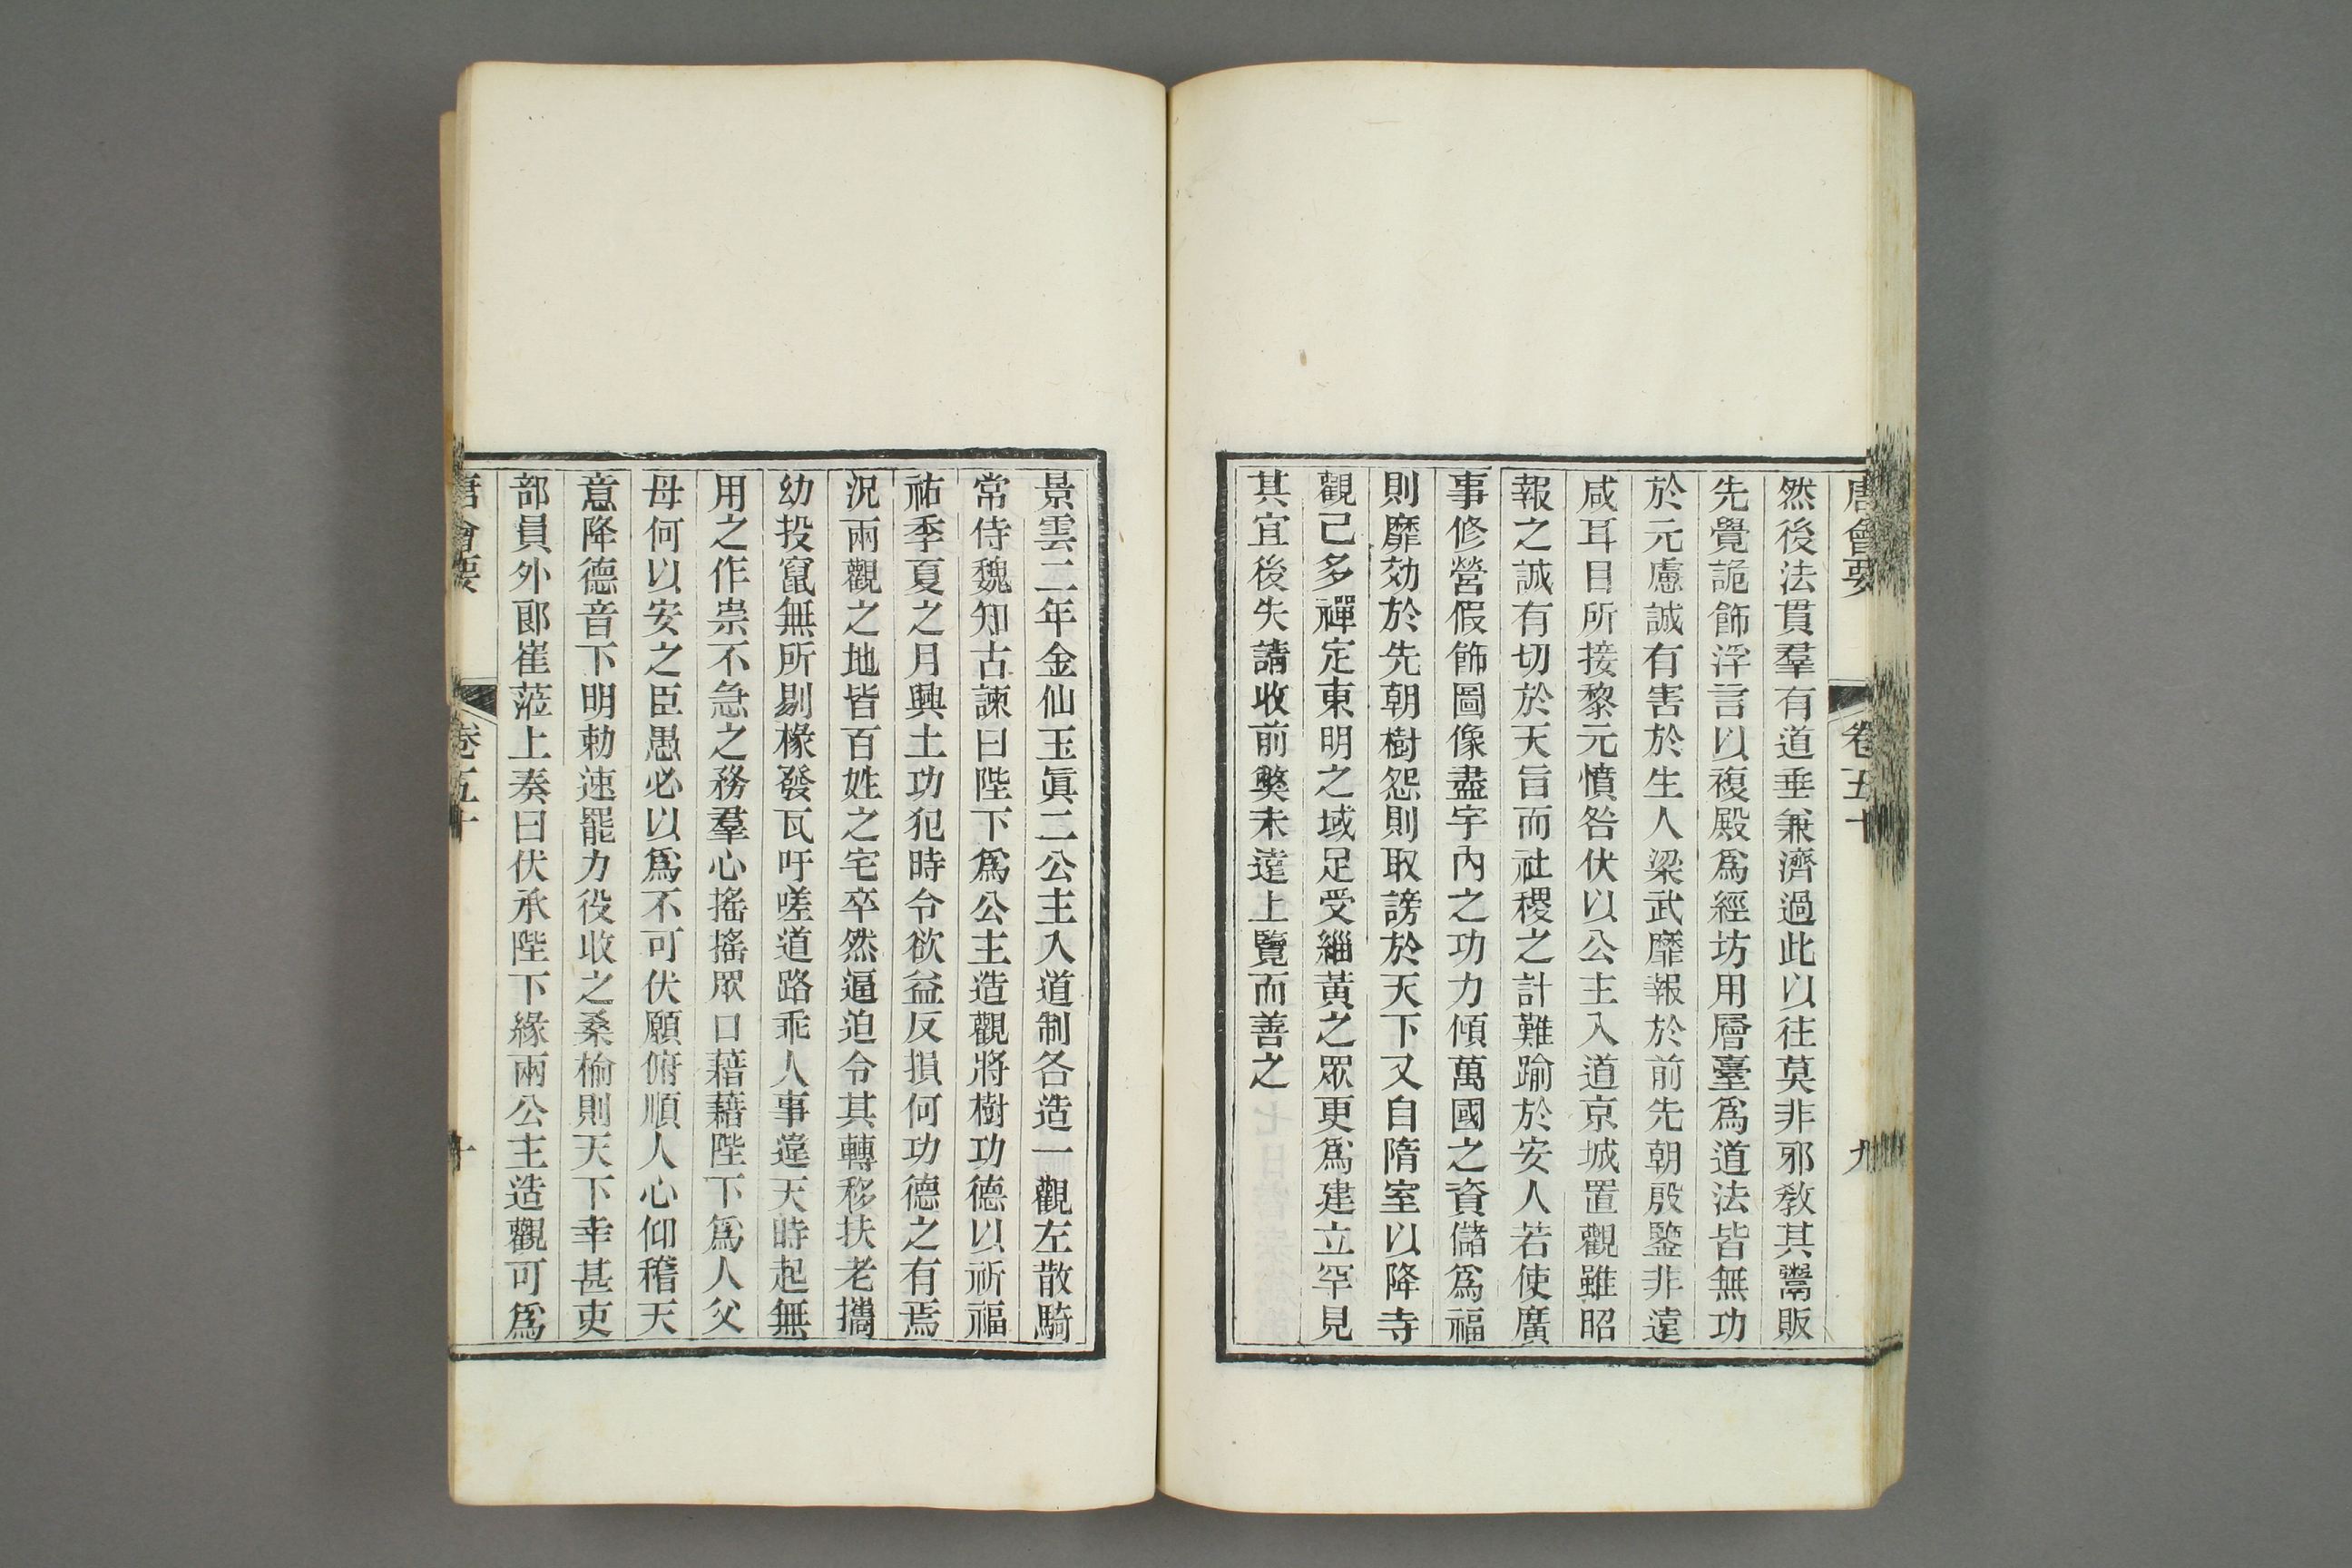 唐會要 卷五十 九
然後法貫羣有道垂兼濟過此以往莫非邪教其鬻販
先覺詭飾浮言以複殿爲經坊用層臺爲道法皆無功
於元慮誠有害於生人梁武靡報於前先朝殷鑒非遠
咸耳目所接黎元憤咎伏以公主入道京城置觀雖昭
報之誠有切於天旨而社稷之計難踰於安人若使廣
事修營假飾圖像盡宇內之功力傾萬國之資儲爲福
則靡効於先朝樹怨則取謗於天下又自隋室以降寺
觀已多禪定東明之域足受緇黃之眾更爲建立罕見
其宜後失請收前弊未遠上覽而善之
景雲二年金仙玉眞二公主入道制各造一觀左散騎
常侍魏知古諫曰陛下爲公主造觀將樹功德以祈福
祐季夏之月興土功犯時令欲益反損何功德之有焉
況兩觀之地皆百姓之宅卒然逼迫令其轉移扶老攜
幼投竄無所剔椽發瓦吁嗟道路乖人事違天時起無
用之作崇不急之務羣心搖搖眾口藉藉陛下爲人父
母何以安之臣愚必以爲不可伏願俯順人心仰稽天
意降德音下明勅速罷力役收之桑榆則天下幸甚吏
部員外郎崔蒞上奏曰伏承陛下緣兩公主造觀可爲
唐會要 卷五十 十